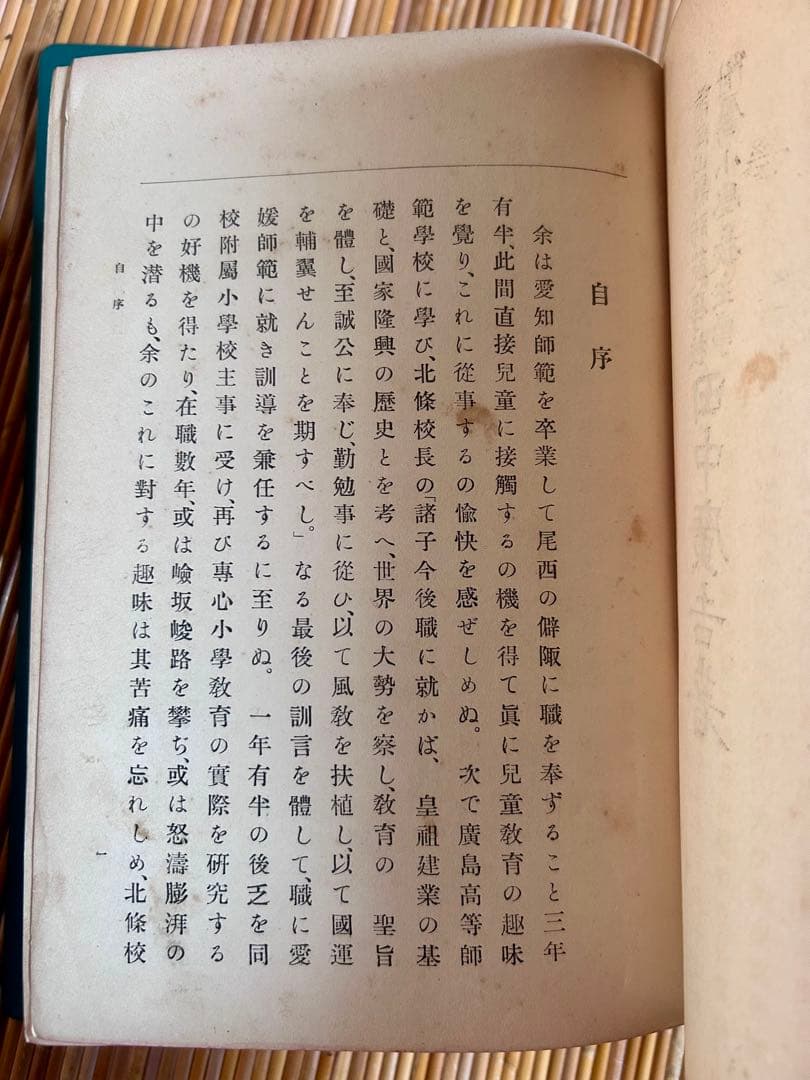 自序
余は愛知師範を卒業して尾西の僻陬に職を奉ずること三年
有半、此間直接兒童に接觸するの機を得て眞に兒童教育の趣味
を覺り、これに從事するの愉快を感ぜしめぬ。次で廣島高等師
範學校に學び、北條校長の「諸子今後職に就かば、皇祖建業の基
礎と、國家隆興の歷史とを考へ、世界の大勢を察し、敎育の聖旨
を體し、至誠公に奉じ、勤勉事に從ひ、以て風敎を扶植し、以て國運
を輔翼せんことを期すべし。」なる最後の訓言を體して、職に愛
媛師範に就き訓導を兼任するに至りぬ。一年有半の後乏を同
校附屬小學校主事に受け、再び專心小學敎育の實際を硏究する
の好機を得たり、在職數年、或は嶮坂峻路を攀ぢ、或は怒濤膨湃の
中を潛るも、余のこれに對する趣味は其苦痛を忘れしめ、北條校
自序
一
田中廣吉著